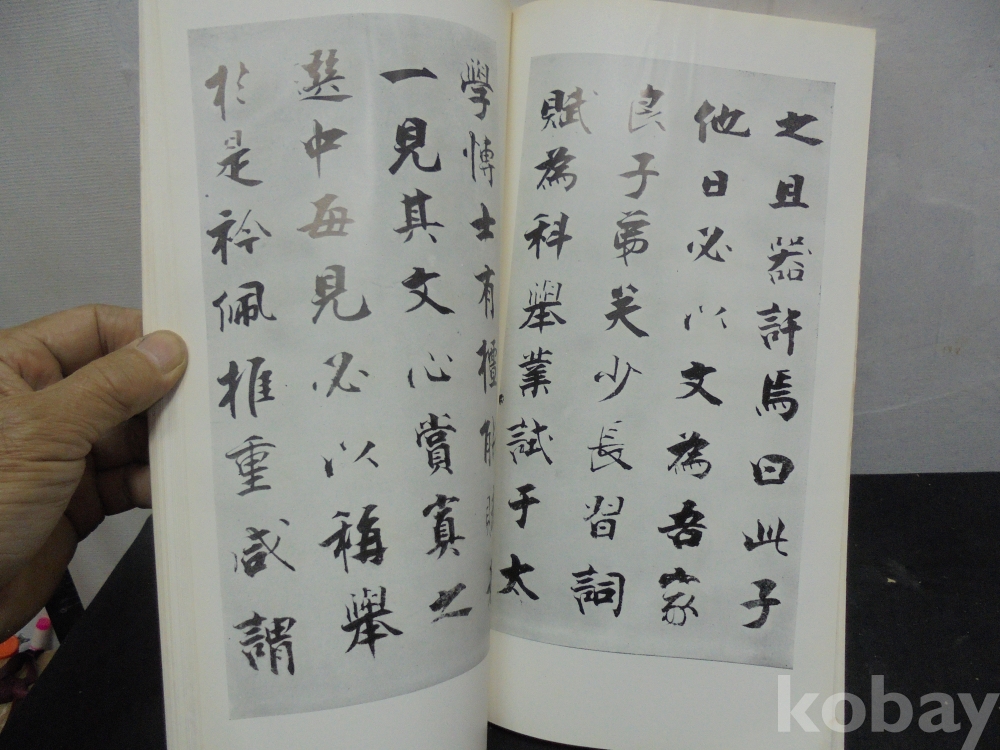 之且器許焉曰此子
他日必以文為吾家
良子弟矣少長習詞
賦為科舉業試于太
學博士有檀
一見其文心賞寘之
選中每見必以稱舉
於是衿佩推重咸謂
kobay